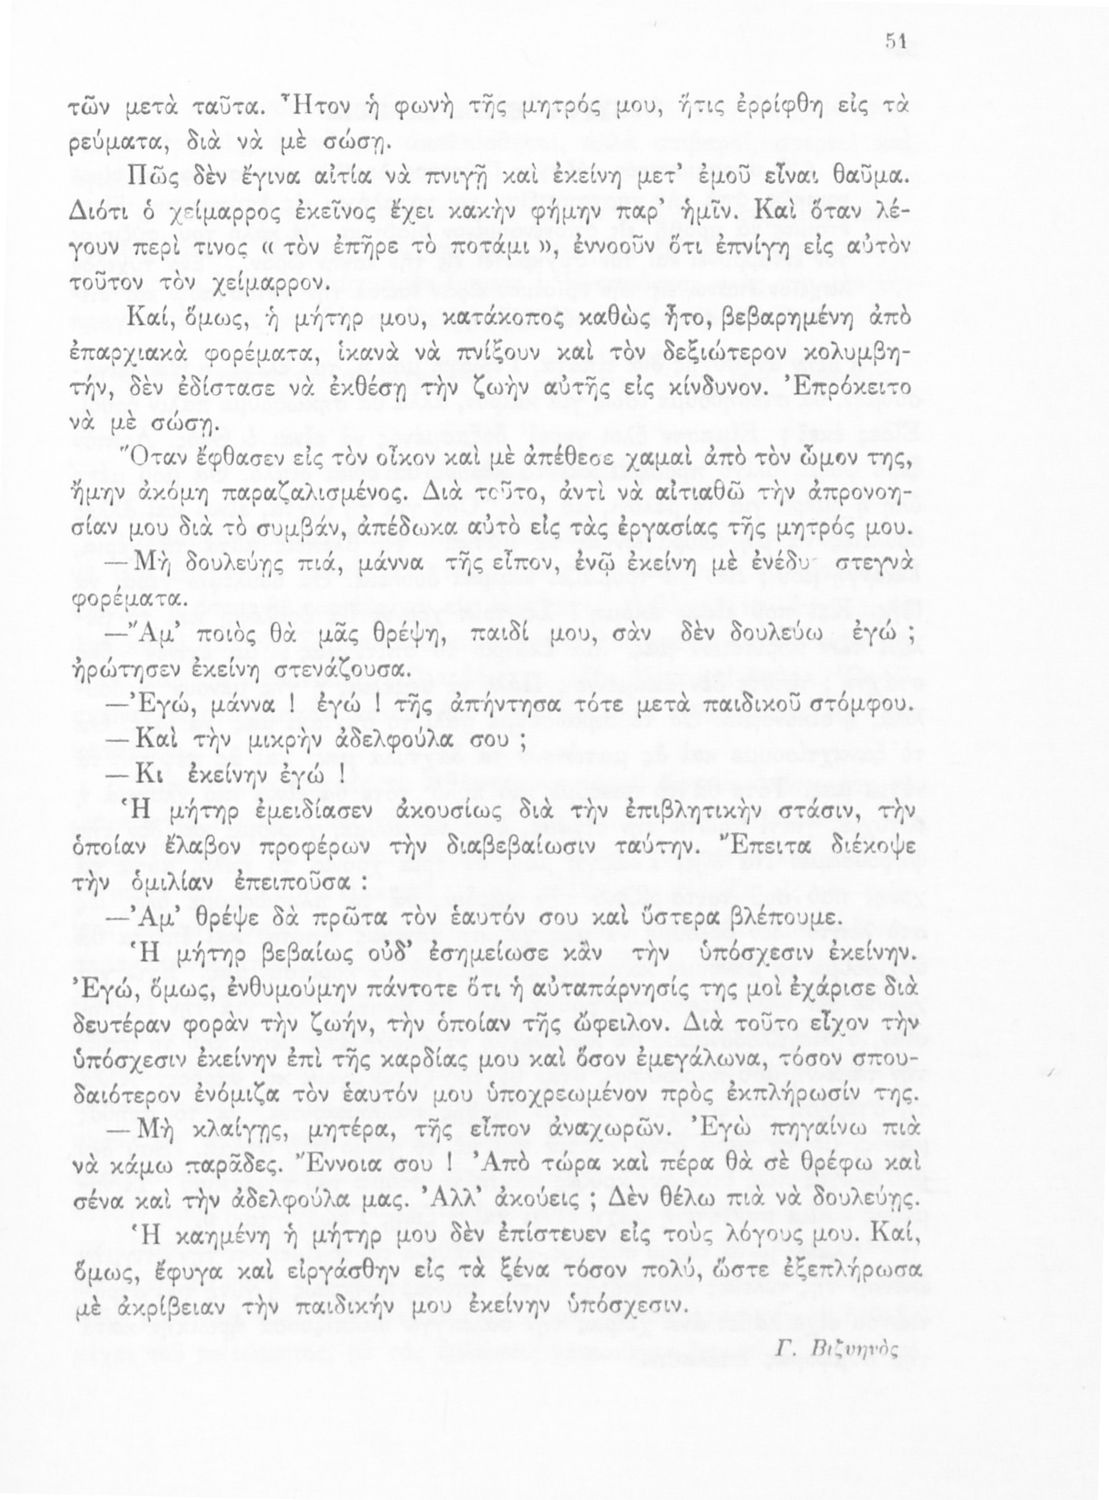 51
τῶν μετὰ ταῦτα. Ἦτον ἡ φωνὴ τῆς μητρός μου, ἥτις ἐρρίφθη εἰς τὰ
ρεύματα, διὰ νὰ μὲ σώσῃ.
Πῶς δὲν ἔγινα αἰτία νὰ πνιγῇ καὶ ἐκείνη μετ’ ἐμοῦ εἶναι θαῦμα.
Διότι ὁ χείμαρρος ἐκεῖνος ἔχει κακὴν φήμην παρ’ ἡμῖν. Καὶ ὅταν λέ-
γουν περὶ τινος « τὸν ἐπῆρε τὸ ποτάμι », ἐννοοῦν ὅτι ἐπνίγη εἰς αὐτὸν
τοῦτον τὸν χείμαρρον.
Καί, ὅμως, ἡ μήτηρ μου, κατάκοπος καθὼς ἦτο, βεβαρημένη ἀπὸ
ἐπαρχιακὰ φορέματα, ἱκανὰ νὰ πνίξουν καὶ τὸν δεξιώτερον κολυμβη-
τήν, δὲν ἐδίστασε νὰ ἐκθέσῃ τὴν ζωὴν αὐτῆς εἰς κίνδυνον. Ἐπρόκειτο
νὰ μὲ σώσῃ.
Ὅταν ἔφθασεν εἰς τὸν οἶκον καὶ μὲ ἀπέθεσε χαμαὶ ἀπὸ τὸν ὦμον της,
ἤμην ἀκόμη παραζαλισμένος. Διὰ τοῦτο, ἀντὶ νὰ αἰτιαθῶ τὴν ἀπρονοη-
σίαν μου διὰ τὸ συμβάν, ἀπέδωκα αὐτὸ εἰς τὰς ἐργασίας τῆς μητρός μου.
— Μὴ δουλεύῃς πιά, μάννα τῆς εἶπον, ἐνῷ ἐκείνη μὲ ἐνέδυ στεγνὰ
φορέματα.
— Ἄμ’ ποιὸς θὰ μᾶς θρέψη, παιδί μου, σὰν δὲν δουλεύω ἐγώ ;
ἠρώτησεν ἐκείνη στενάζουσα.
— Ἐγώ, μάννα ! ἐγώ ! τῆς ἀπήντησα τότε μετὰ παιδικοῦ στόμφου.
— Καὶ τὴν μικρὴν ἀδελφούλα σου ;
— Κι ἐκείνην ἐγώ !
Ἡ μήτηρ ἐμειδίασεν ἀκουσίως διὰ τὴν ἐπιβλητικὴν στάσιν, τὴν
ὁποίαν ἔλαβον προφέρων τὴν διαβεβαίωσιν ταύτην. Ἔπειτα διέκοψε
τὴν ὁμιλίαν ἐπειποῦσα :
— Ἀμ’ θρέψε δὰ πρῶτα τὸν ἑαυτόν σου καὶ ὕστερα βλέπουμε.
Ἡ μήτηρ βεβαίως οὐδ’ ἐσημείωσε κἂν τὴν ὑπόσχεσιν ἐκείνην.
Ἐγώ, ὅμως, ἐνθυμούμην πάντοτε ὅτι ἡ αὐταπάρνησίς της μοὶ ἐχάρισε διὰ
δευτέραν φορὰν τὴν ζωήν, τὴν ὁποίαν τῆς ὤφειλον. Διὰ τοῦτο εἶχον τὴν
ὑπόσχεσιν ἐκείνην ἐπὶ τῆς καρδίας μου καὶ ὅσον ἐμεγάλωνα, τόσον σπου-
δαιότερον ἐνόμιζα τὸν ἑαυτόν μου ὑποχρεωμένον πρὸς ἐκπλήρωσίν της.
— Μὴ κλαίγῃς, μητέρα, τῆς εἶπον ἀναχωρῶν. Ἐγὼ πηγαίνω πιὰ
νὰ κάμω παρᾶδες. Ἔννοια σου ! Ἀπὸ τώρα καὶ πέρα θὰ σὲ θρέφω καὶ
σένα καὶ τὴν ἀδελφούλα μας. Ἀλλ’ ἀκούεις ; Δὲν θέλω πιὰ νὰ δουλεύῃς.
Ἡ καημένη ἡ μήτηρ μου δὲν ἐπίστευεν εἰς τοὺς λόγους μου. Καί,
ὅμως, ἔφυγα καὶ εἰργάσθην εἰς τὰ ξένα τόσον πολύ, ὥστε ἐξεπλήρωσα
μὲ ἀκρίβειαν τὴν παιδικήν μου ἐκείνην ὑπόσχεσιν.
Γ. Βιζυηνὸς